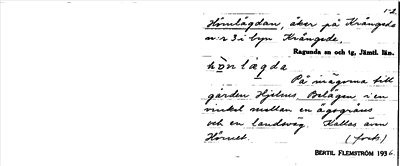 1-2.
Hörnlägdan, åker på Krångede
n:r 3 i byn Krångede.
Ragunda sn och tg, Jämtl. län.
hö̀nlæ̀gda
På ägorna till
gården Hjelms. Belägen i en
vinkel mellan en ägogräns
och en landsväg. Kallas även
Hörnet. (forts.)
BERTIL FLEMSTRÖM 1936.